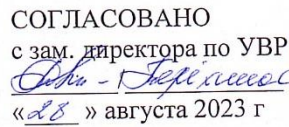 СОГЛАСОВАНО
с зам. директора по УВР
«28 » августа 2023 г